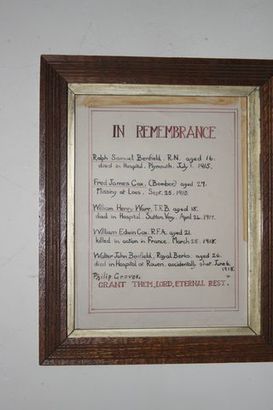 IN REMEMBRANCE
Ralph Samuel Benfield. R.N. aged 16.
died in Hospital. Plymouth. July 1. 1915.
Fred James Cox. (Bomber) aged 27.
Missing at Loos. Sept. 25. 1915.
William Henry Warr. T.R.B. aged 18.
died in Hospital. Sutton Veny. April 26. 1917.
William Edwin Cox. R.F.A. aged 21.
killed in action in France. March 25. 1918.
Walter John Benfield. Royal Berks. aged 26.
died in Hospital at Rouen. accidentally shot June 6.
1918.
Philip Groves.
GRANT THEM, LORD, ETERNAL REST.